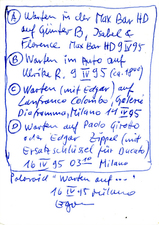 Ⓐ Warten in der Max Bar HD
auf Günter B, Isabel &
Florence Max Bar HD 9 IV 95
Ⓑ Warten im Auto auf
Ulrike R. 9 IV 95 (ca.
Ⓒ Warten (mit Edgar) auf
Lanfranco Colombo, Galerie
Diaframma, Milano 95
Ⓓ Warten auf Paolo Girotto
oder Edgar Zippel (mit
Ersatzschlüssel für Ducato)
16 IV 95 03 10 Milano
Polaroid "Warten auf..."
16 IV 95 Milano